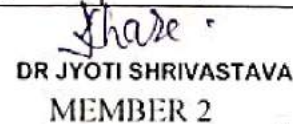 Khare
DR JYOTI SHRIVASTAVA
MEMBER 2